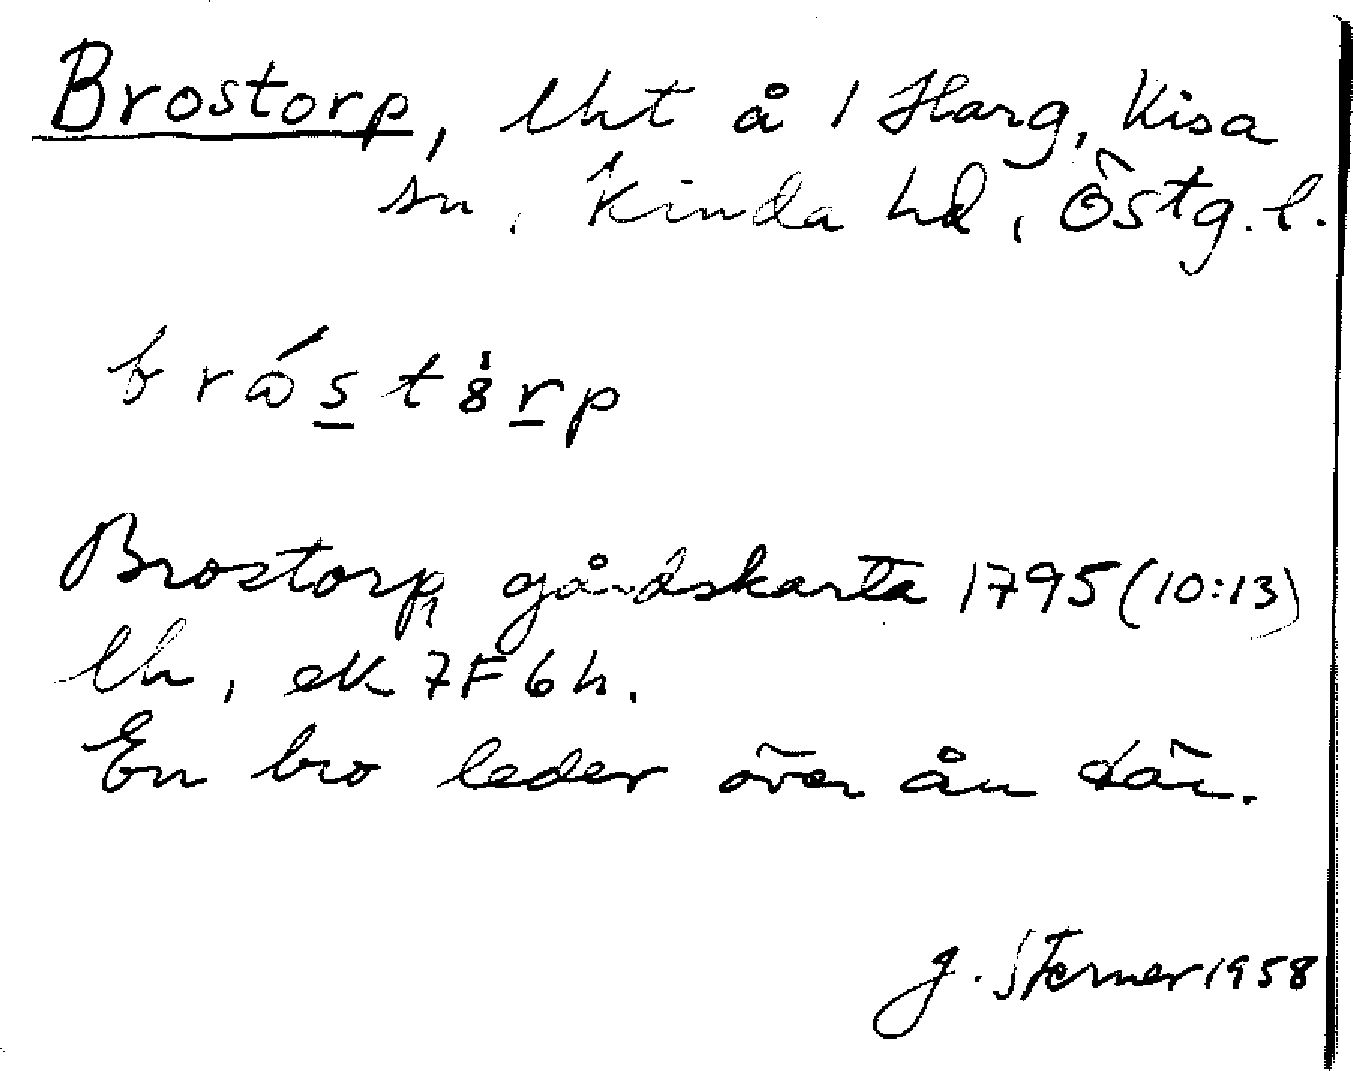 Brostorp, lht å 1 Harg, Kisa
sn, Kinda hd, Östg. l.
bråstȯrp
Brostorp, gårdskarta 1795 (10:13)
lh, ek 7F 6h.
En bro leder över ån där.
G. Sterner 1958